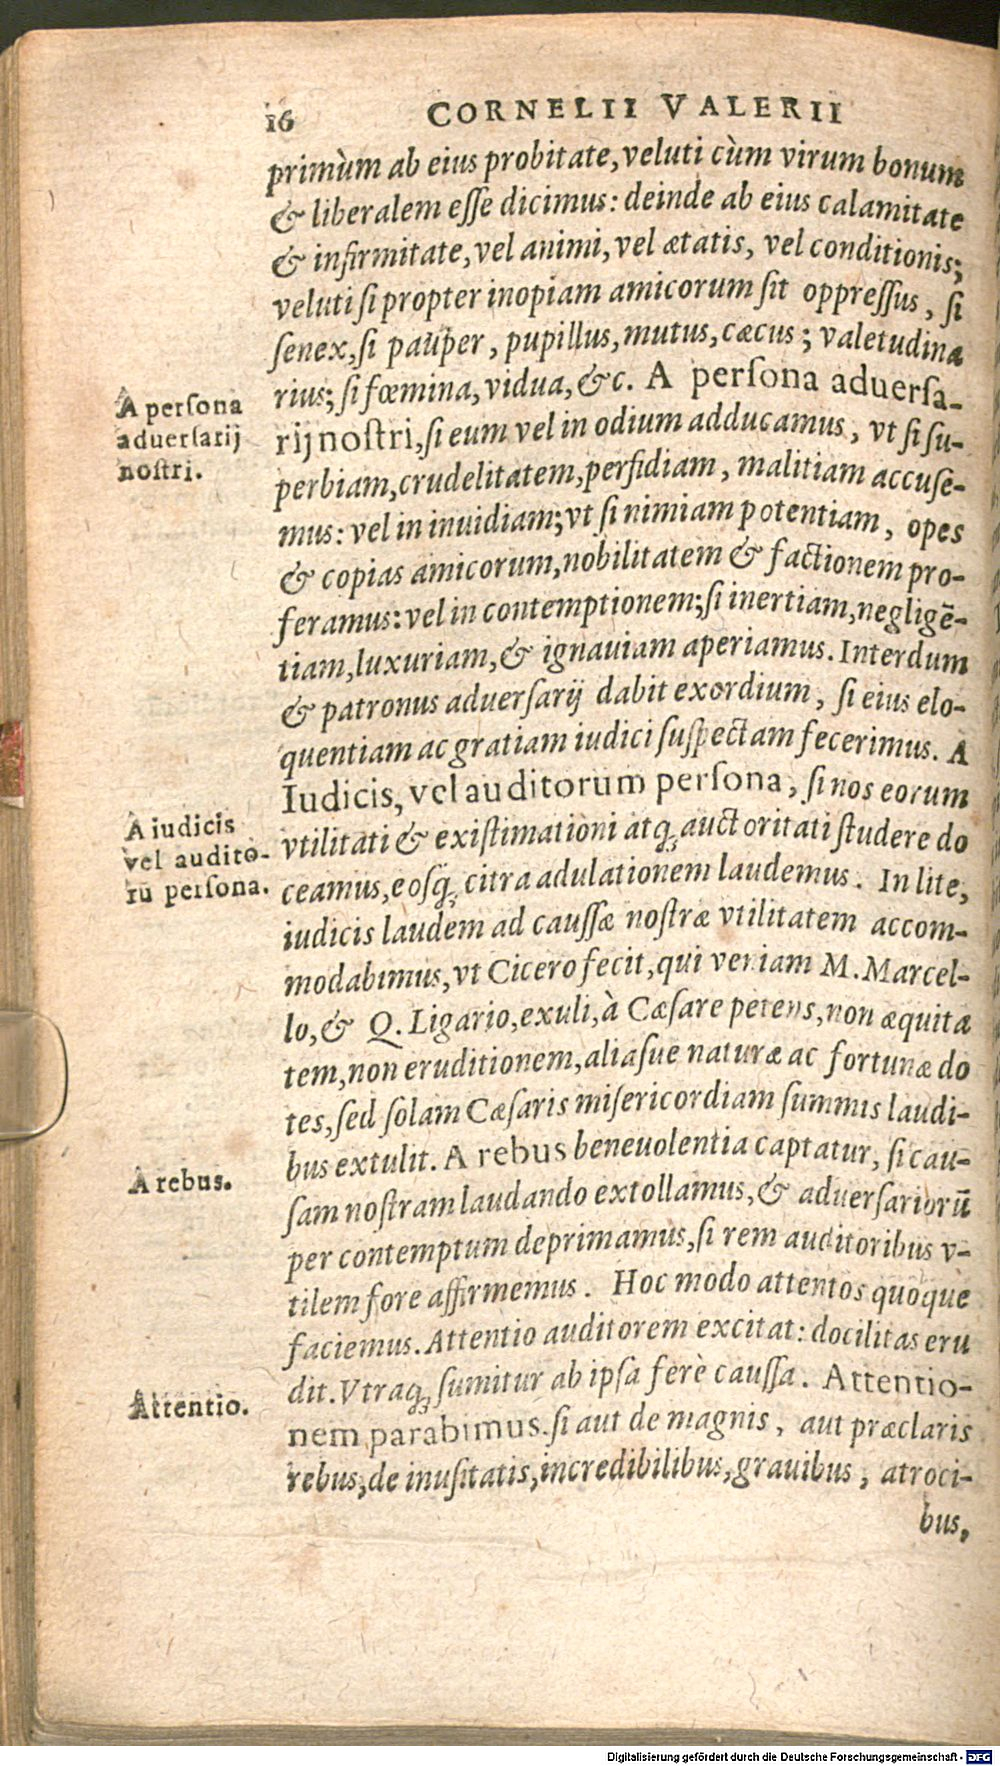 16 CORNELII VALERII
primùm ab eius probitate, veluti cùm virum bonum
& liberalem eſſe dicimus: deinde ab eius calamitate
& infirmitate, vel animi, vel ætatis, vel conditionis;
veluti ſi propter inopiam amicorum ſit oppreſſus, ſi
ſenex, ſi pauper, pupillus, mutus, cæcus; valetudina
rius; ſi fœmina, vidua, &c. A perſona aduerſa-
A perſona
aduerſarij
noſtri.
rij noſtri, ſi eum vel in odium adducamus, vt ſi ſu-
perbiam, crudelitatem, perfidiam, malitiam accuſe-
mus: vel in inuidiam; vt ſi nimiam potentiam, opes
& copias amicorum, nobilitatem & factionem pro-
feramus: vel in contemptionem; ſi inertiam, negligē-
tiam, luxuriam, & ignauiam aperiamus. Interdum
& patronus aduerſarij dabit exordium, ſi eius elo-
quentiam ac gratiam iudici ſuſpectam fecerimus. A
Iudicis, vel auditorum perſona, ſi nos eorum
A iudicis
vel audito-
rū perſona.
vtilitati & exiſtimationi atq; auctoritati ſtudere do
ceamus, eoſq; citra adulationem laudemus. In lite,
iudicis laudem ad cauſſæ noſtræ vtilitatem accom-
modabimus, vt Cicero fecit, qui veniam M. Marcel-
lo, & Q. Ligario, exuli, à Cæſare petens, non æquita
tem, non eruditionem, aliaſue naturæ ac fortunæ do
tes, ſed ſolam Cæſaris miſericordiam ſummis laudi-
bus extulit. A rebus beneuolentia captatur, ſi cau-
A rebus.
ſam noſtram laudando extollamus, & aduerſariorū
per contemptum deprimamus, ſi rem auditoribus v-
tilem fore affirmemus. Hoc modo attentos quoque
faciemus. Attentio auditorem excitat: docilitas eru
dit. Vtraq; ſumitur ab ipſa ferè cauſſa. Attentio-
Attentio.
nem parabimus. ſi aut de magnis, aut præclaris
rebus; de inuſitatis, incredibilibus, grauibus, atroci-
bus,
Digitalisierung gefördert durch die Deutsche Forschungsgemeinschaft - DFG